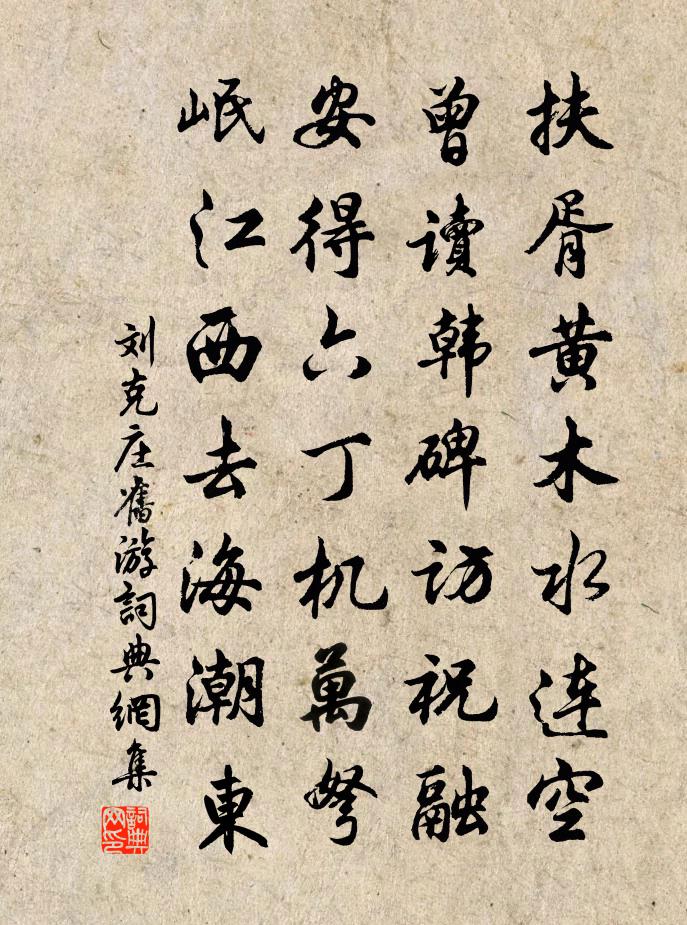 扶胥黄木水连空
曾读韩碑访祝融
安得六丁机萬弩
岷江西去海潮東
刘克庄舊游詞典網集
詞典网印